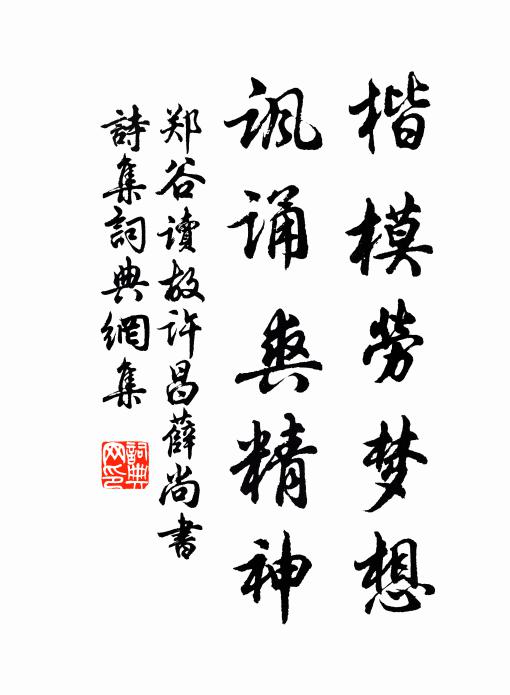 楷模劳梦想
讽诵爽精神
郑谷读故许昌薛尚书
詩集詞典網集
詞典
网印